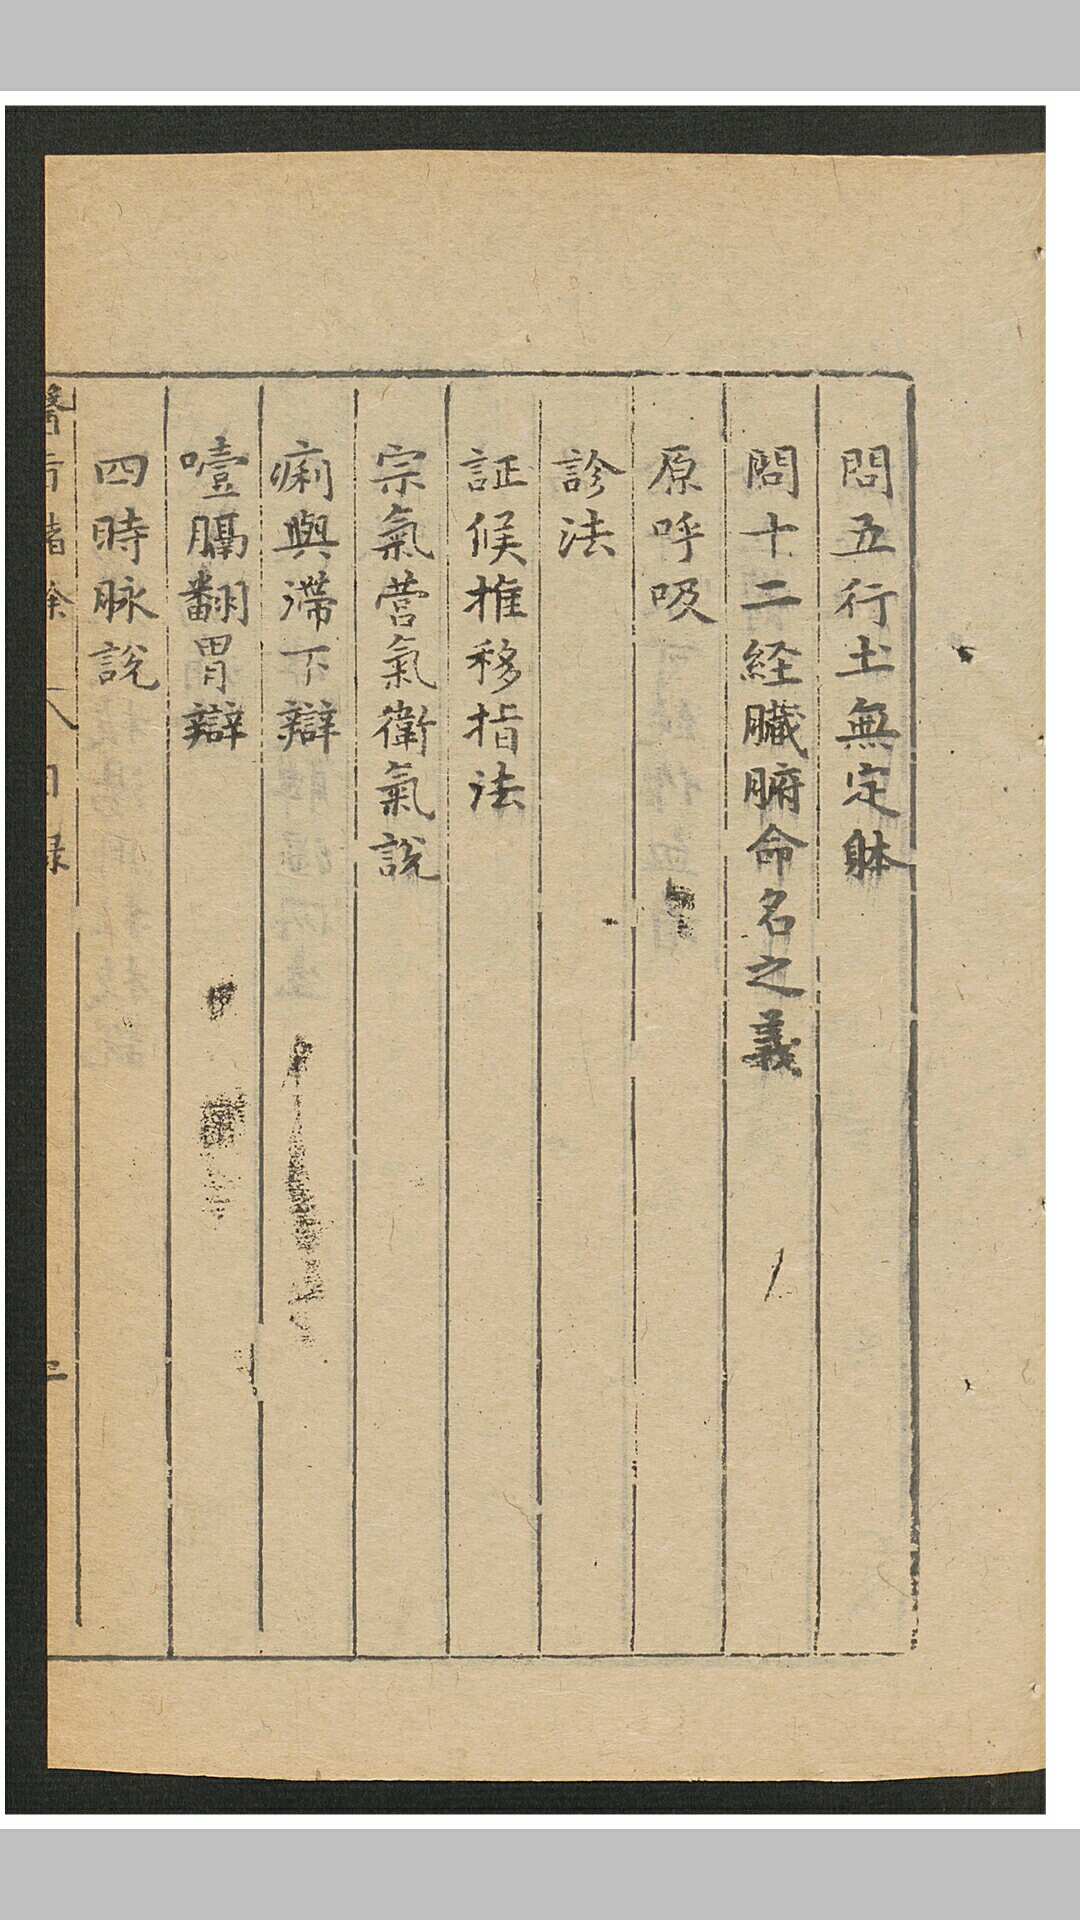 問五行土無定躰
問十二経臓腑命名之義
原呼吸
診法
証候推移指法
宗氣營氣衛氣說
痢與滯下辯
噎膈翻胃辯
四時脉說